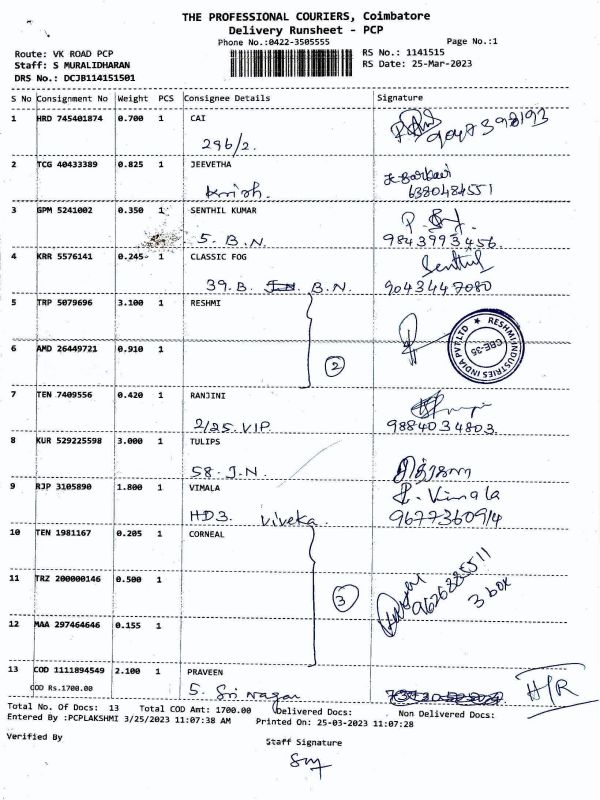 THE PROFESSIONAL COURIERS, Coimbatore
Delivery Runsheet - PCP
Phone No.:0422-3505555 Page No.:1
Route: VK ROAD PCP RS No.: 1141515
Staff: S MURALIDHARAN RS Date: 25-Mar-2023
DRS No.: DCJB114151501
S No Consignment No Weight PCS Consignee Details Signature
1 HRD 745401874 0.700 1 CAI
296/2.
2 TCG 40433389 0.825 1 JEEVETHA
6380484551
3 GPM 5241002 0.350 1 SENTHIL KUMAR
5. B.N. 9843993456.
4 KRR 5576141 0.245 1 CLASSIC FOG Senthil
39. B. B.N. 9043447080
5 TRP 5079696 3.100 1 RESHMI
RESHMI INDUSTRIES INDIA PVT.LTD ★
CBE-35
6 AMD 26449721 0.910 1 2
7 TEN 7409556 0.420 1 RANJINI
2/25. VIP 9884034803.
8 KUR 529225598 3.000 1 TULIPS
58. J.N.
9 RJP 3105890 1.800 1 VIMALA Vimala
HD3. Viveka. 9677360914
10 TEN 1981167 0.205 1 CORNEAL
11 TRZ 200000146 0.500 1 3 9626285511
3 box
12 MAA 297464646 0.155 1
13 COD 1111894549 2.100 1 PRAVEEN
COD Rs.1700.00 5. Sri Nagar H/R
Total No. Of Docs: 13 Total COD Amt: 1700.00 Delivered Docs: Non Delivered Docs:
Entered By :PCPLAKSHMI 3/25/2023 11:07:38 AM Printed On: 25-03-2023 11:07:28
Verified By
Staff Signature